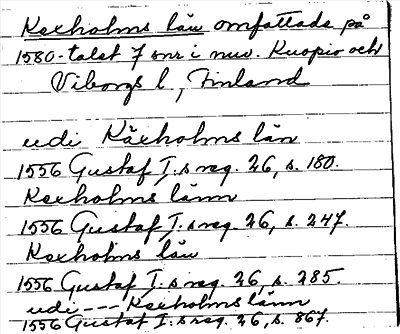 Kexholms län omfattade på
1580-talet 7 snr i nuv. Kuopio och
Viborgs l., Finland
udi Käxholms län
1556 Gustaf I:s reg. 26, s. 180.
Kexholms länn
1556 Gustaf I:s reg. 26, s. 247.
Kexholms län
1556 Gustaf I:s reg. 26, s. 285.
udi --- Kexholms länn
1556 Gustaf I:s reg. 26, s. 867.